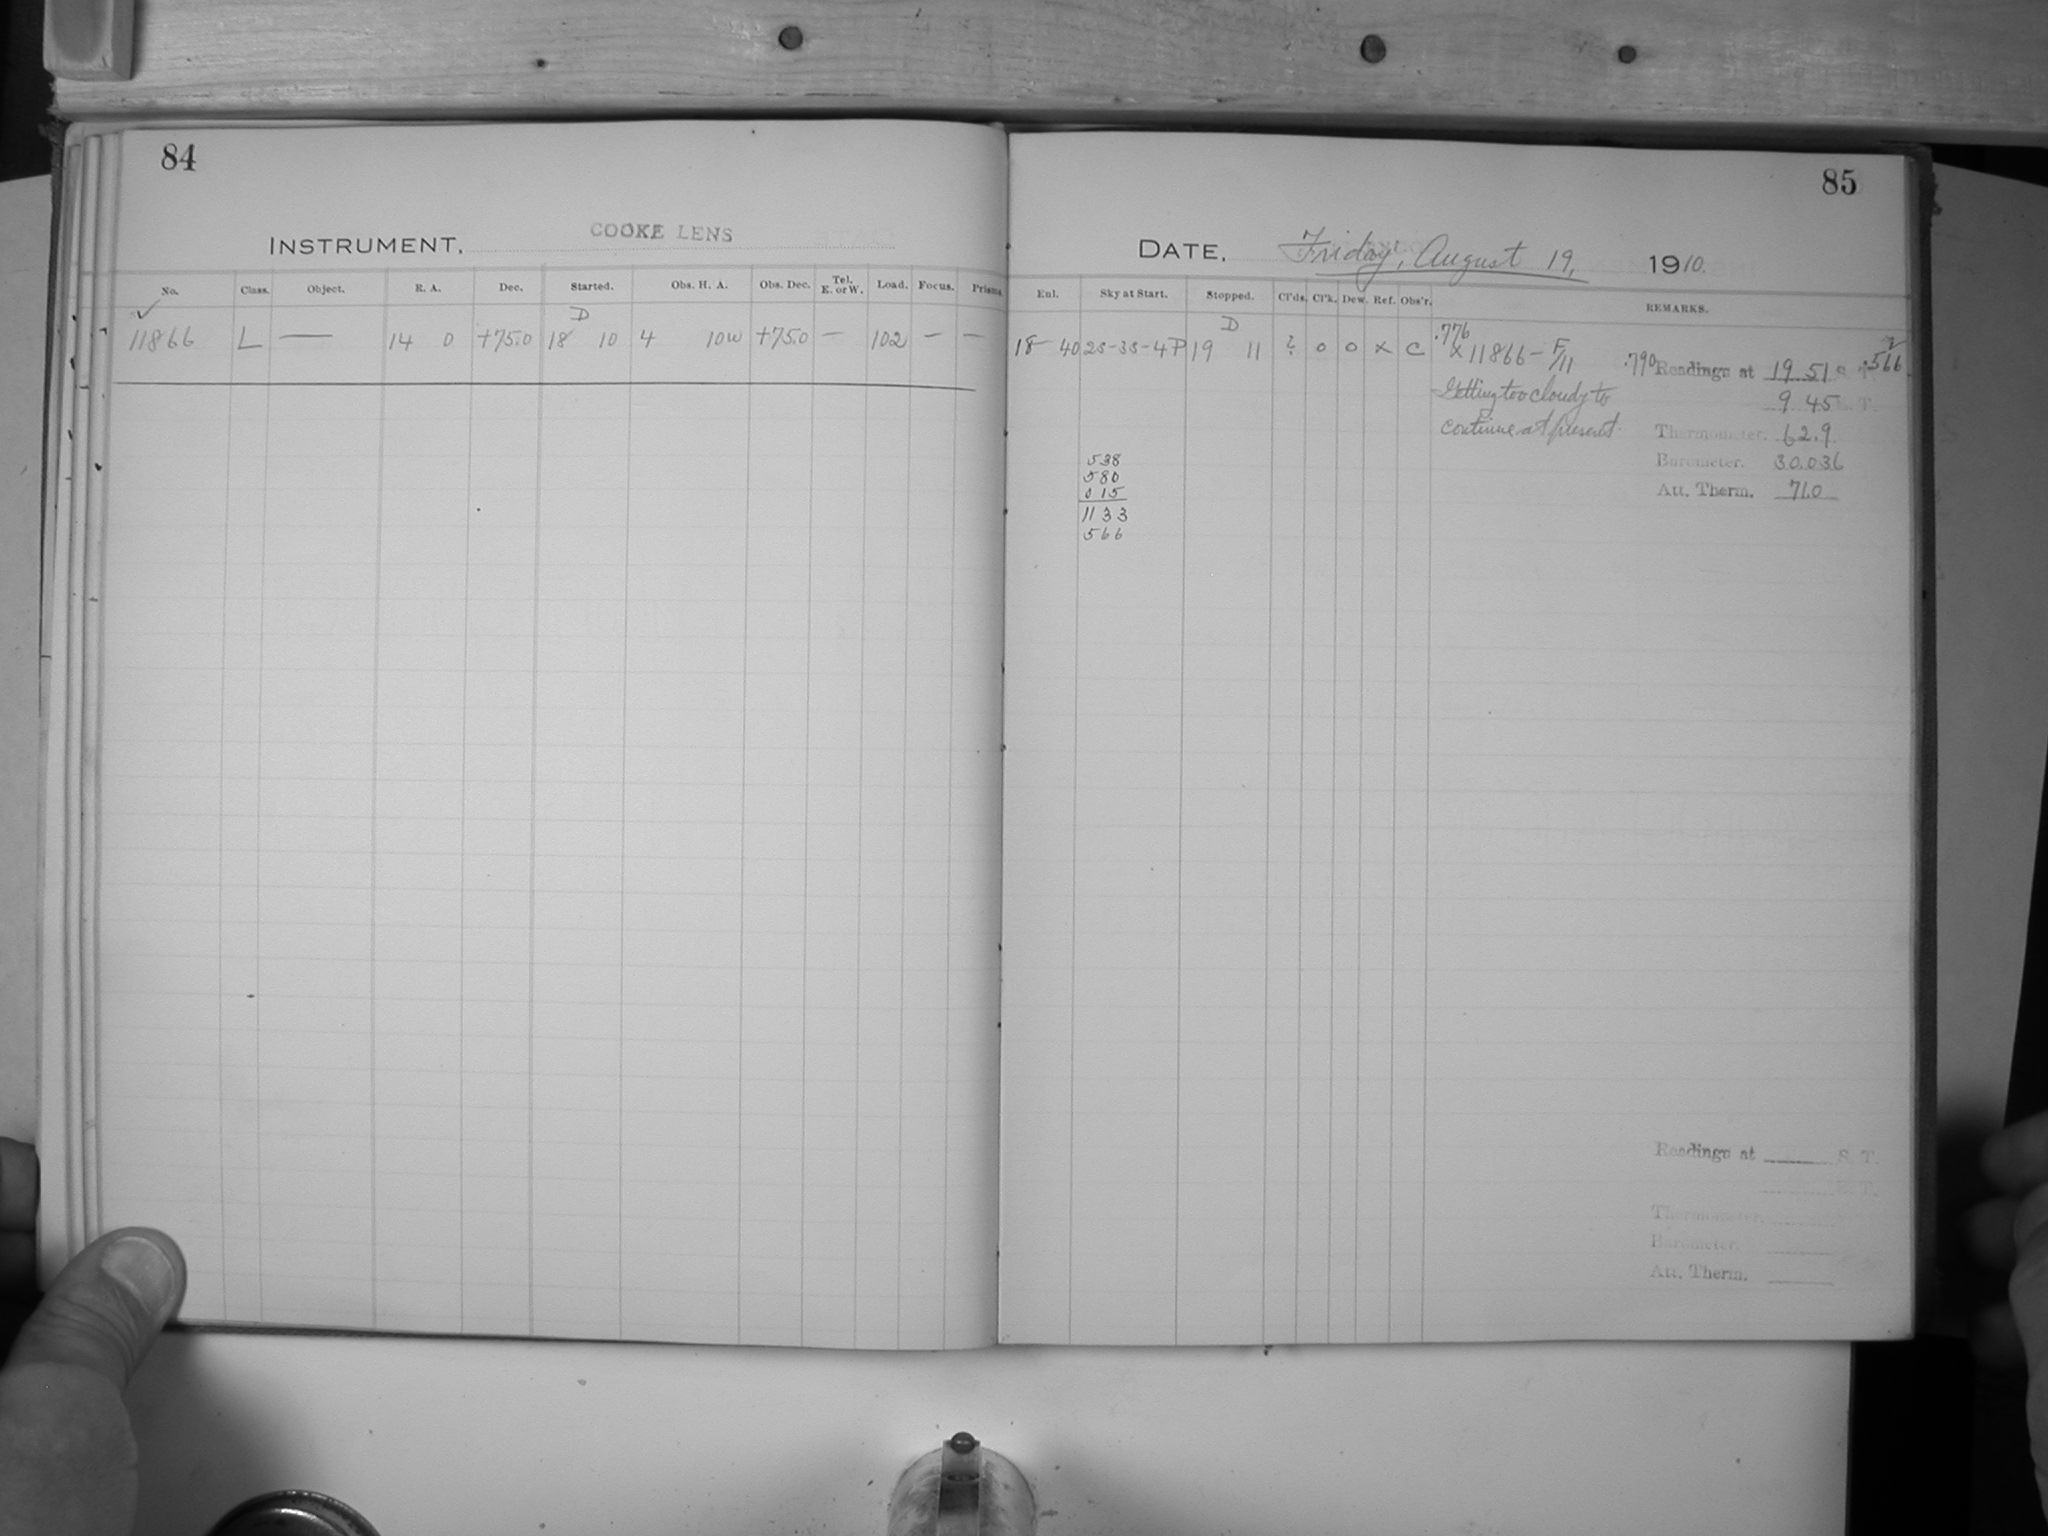 84
INSTRUMENT, COOKE LENS
No. Class. Object. R. A. Dec. Started. Obs. H. A. Obs. Dec. Tel. E. or W. Load. Focus. Prisms
✓ D
11866 L — 14 0 +75.0 18 10 4 10w +75.0 — 102 — —
85
DATE, Friday, August 19, 1910.
Enl. Sky at Start. Stopped. Cl'ds. Cl'k. Dew. Ref. Obs'r. REMARKS.
D .776
18 40 2s-3s-4P 19 11 ? 0 0 x C x 11866 - F/11
.790 Readings at 19 51 S. T. .566
Getting too cloudy to 9 45 E. T.
continue at present. Thermometer. 62.9
538 Barometer. 30.036
580
015 Att. Therm. 71.0
1133
566
Readings at S. T.
E. T.
Thermometer.
Barometer.
Att. Therm.